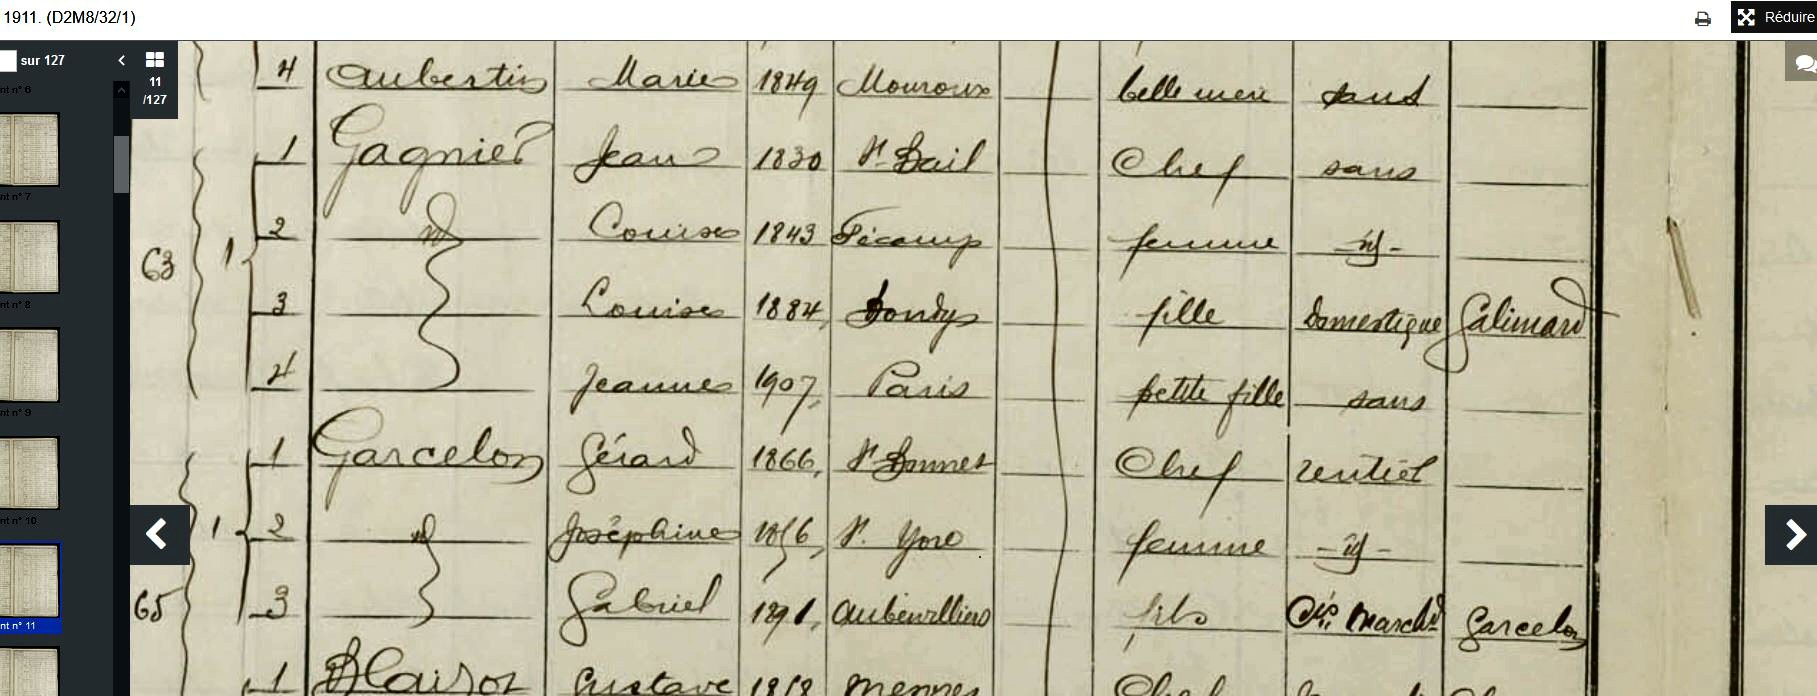 1911. (D2M8/32/1)
Réduire
sur 127
11
/127
nt n° 6
nt n° 7
nt n° 8
nt n° 9
nt n° 10
nt n° 11
4 Aubertin Marie 1849 Mouroux belle mère sans
1 Gagnier Jean 1830 chef sans
63 1 2 id Louise 1843 Fécamp femme id
3 Louise 1884 Bondy fille domestique Galimard
4 Jeanne 1907 Paris petite fille sans
1 Garcelon Gérard 1866 St Bonnet chef rentier
1 2 id Joséphine St. Yore femme id
65 3 Gabriel 1891 Aubervilliers fils Garcelon
1 Gustave Chef